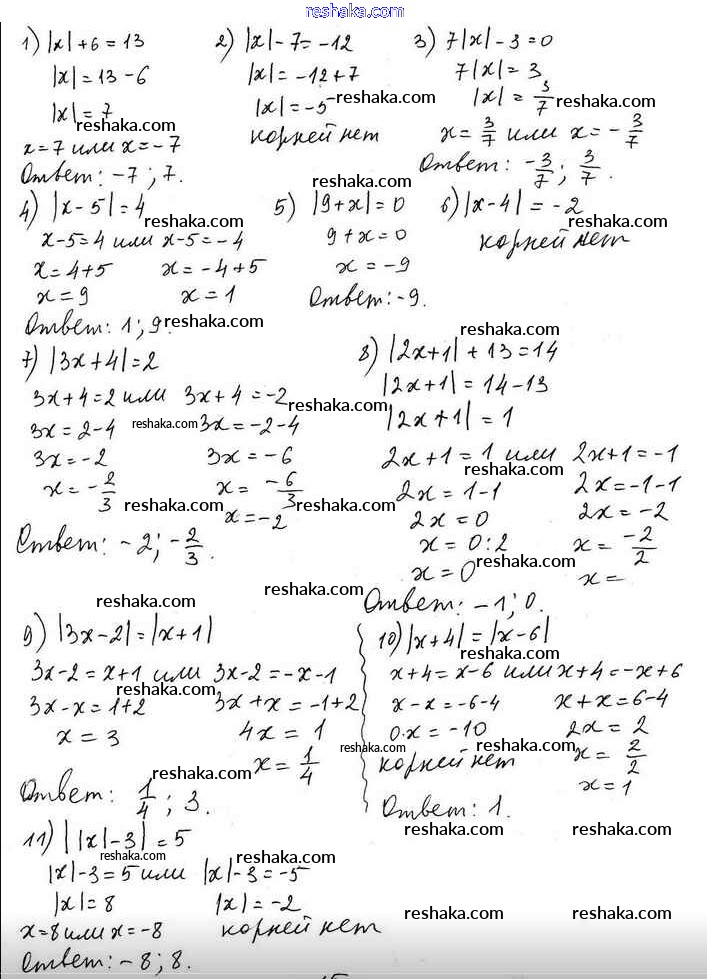 reshaka.com
1) |x| + 6 = 13
|x| = 13 - 6
|x| = 7
reshaka.com
x = 7 или x = -7
Ответ: -7; 7.
2) |x| - 7 = -12
|x| = -12 + 7
|x| = -5
reshaka.com
корней нет
3) 7|x| - 3 = 0
7|x| = 3
|x| = 3/7
reshaka.com
x = 3/7 или x = -3/7
Ответ: -3/7; 3/7.
4) |x - 5| = 4
reshaka.com
x-5=4 или x-5=-4
x = 4+5 x = -4+5
x = 9 x = 1
Ответ: 1; 9.
reshaka.com
5) |9 + x| = 0
reshaka.com
9 + x = 0
x = -9
Ответ: -9.
6) |x - 4| = -2
reshaka.com
корней нет
7) |3x + 4| = 2
3x + 4 = 2 или 3x + 4 = -2
reshaka.com
3x = 2 - 4 3x = -2 - 4
reshaka.com
3x = -2 3x = -6
x = -2/3 x = -6/3
reshaka.com
x = -2
Ответ: -2; -2/3.
reshaka.com
8) |2x+1| + 13 = 14
reshaka.com
|2x+1| = 14 - 13
|2x+1| = 1
2x+1 = 1 или 2x+1 = -1
reshaka.com
2x = 1-1 2x = -1-1
reshaka.com
2x = 0 2x = -2
x = 0 : 2 x = -2/2
reshaka.com
x = 0 x =
Ответ: -1; 0.
reshaka.com
reshaka.com
9) |3x-2| = |x+1|
3x-2 = x+1 или 3x-2 = -x-1
reshaka.com
3x - x = 1+2 3x + x = -1+2
x = 3 4x = 1
x = 1/4
reshaka.com
Ответ: 1/4; 3.
reshaka.com
10) |x+4| = |x-6|
reshaka.com
x+4 = x-6 или x+4 = -x+6
x - x = -6-4 x + x = 6-4
reshaka.com
0·x = -10 2x = 2
reshaka.com
корней нет x = 2/2
x = 1
Ответ: 1.
reshaka.com
reshaka.com
11) ||x| - 3| = 5
reshaka.com
reshaka.com
|x| - 3 = 5 или |x| - 3 = -5
reshaka.com
|x| = 8 |x| = -2
reshaka.com
x = 8 или x = -8 корней нет
Ответ: -8; 8.